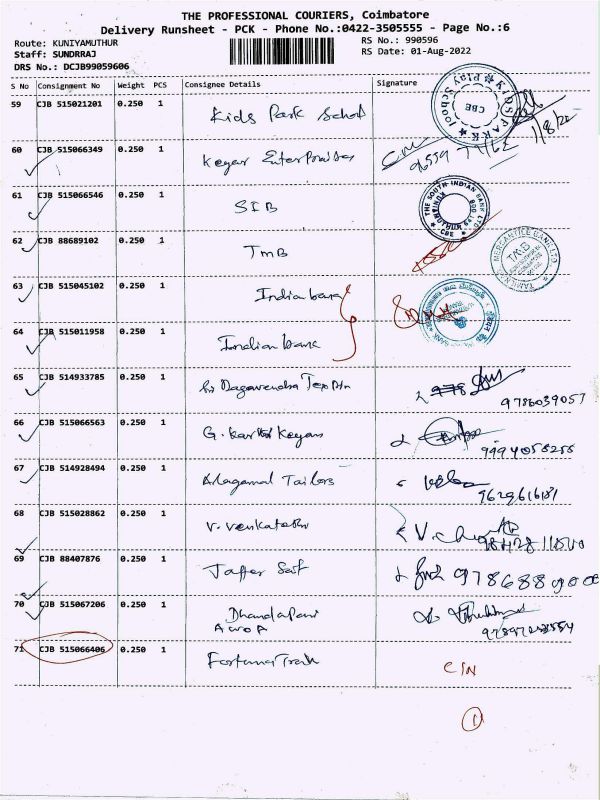 THE PROFESSIONAL COURIERS, Coimbatore
Delivery Runsheet - PCK - Phone No.:0422-3505555 - Page No.:6
Route: KUNIYAMUTHUR
RS No.: 990596
Staff: SUNDRRAJ
RS Date: 01-Aug-2022
DRS No.: DCJB99059606
S No Consignment No Weight PCS Consignee Details Signature
59 CJB 515021201 0.250 1 Kids Park School
KIDS PARK Play School CBE
1/8/22
60 CJB 515066349 0.250 1 Keyar Enterprises
61 CJB 515066546 0.250 1 SIB
THE SOUTH INDIAN BANK LTD
CBE
62 CJB 88689102 0.250 1 TMB
MERCANTILE BANK LTD. TMB
63 CJB 515045102 0.250 1 Indian bank
64 CJB 515011958 0.250 1 Indian bank
65 CJB 514933785 0.250 1 Sri Ragavendra Tex
9786039057
66 CJB 515066563 0.250 1 G. Karthi Keyan
67 CJB 514928494 0.250 1 Alagamal Tailors
9629616181
68 CJB 515028862 0.250 1 V. Venkatesh
69 CJB 88407876 0.250 1 Jaffer Sait
70 CJB 515067206 0.250 1 Dhandapani
71 CJB 515066406 0.250 1 Fortuna Trak
CIN
1